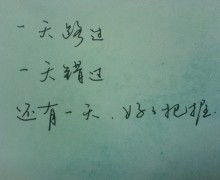 一天路过
一天错过
还有一天、好好把握